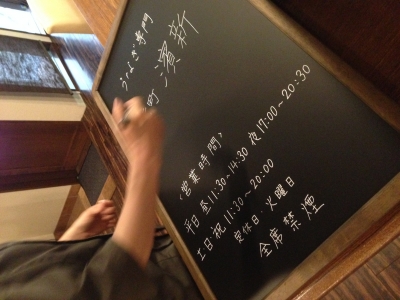 うなぎ専門
町 濱新
〈営業時間〉
平日 昼11:30~14:30 夜17:00~20:30
土日祝 11:30~20:00
定休日:火曜日
全席禁煙